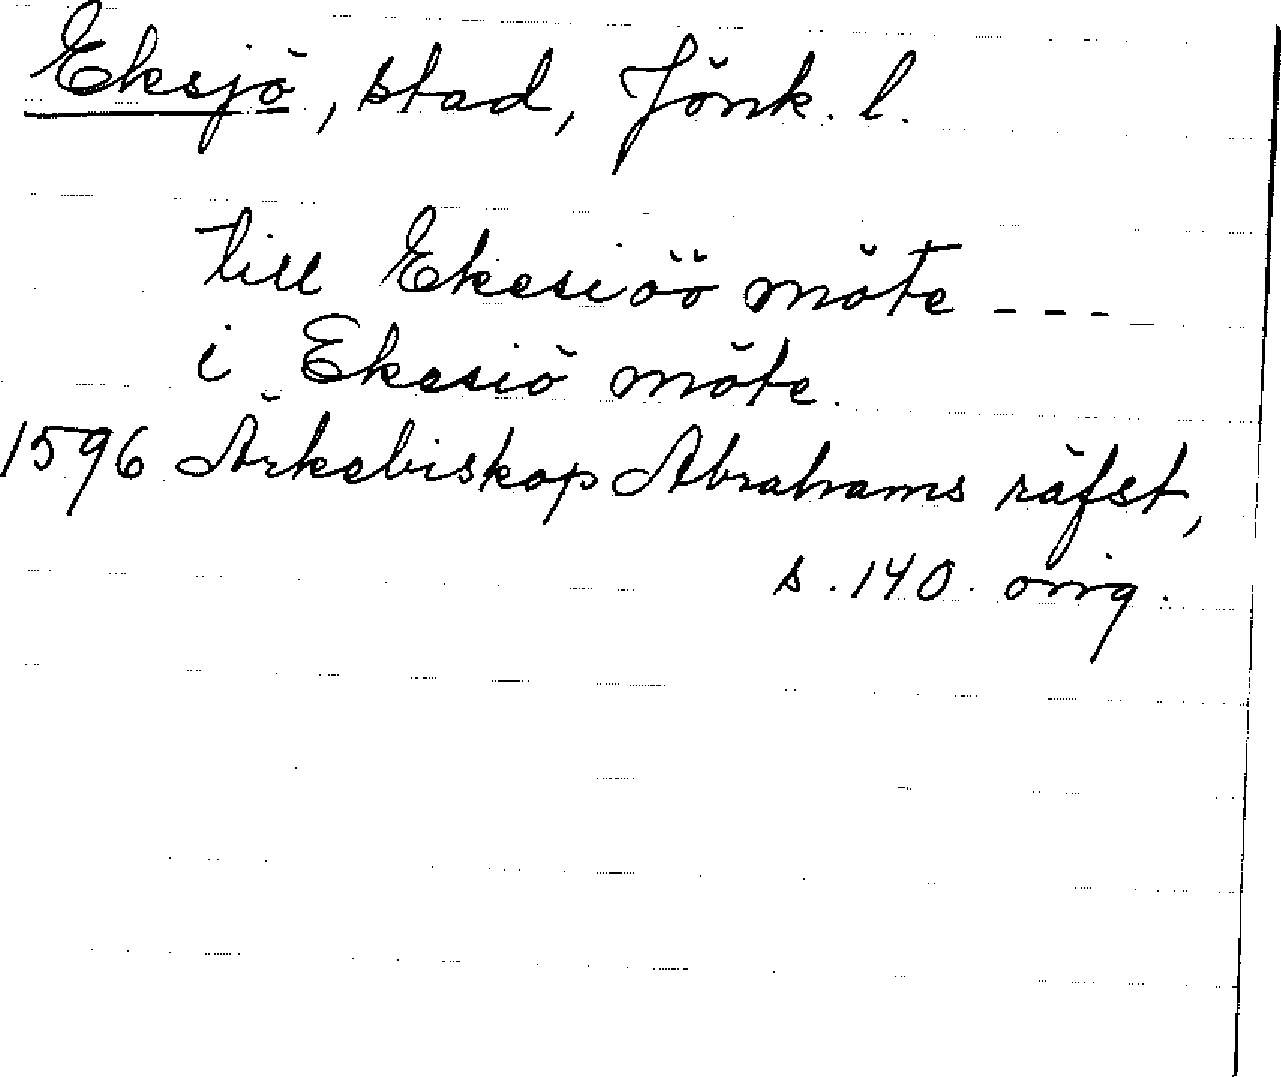 Eksjö, stad, Jönk. l.
till Ekesiöö möte ----
i Ekesiö möte.
1596 Ärkebiskop Abrahams räfst,
s. 140. orig.